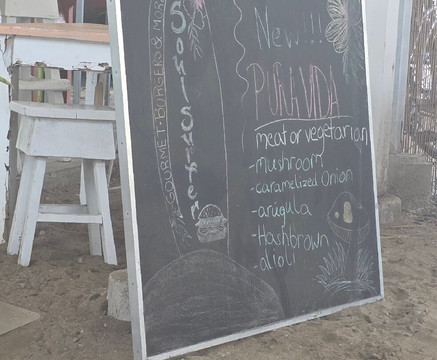 GOURMET·BURGERS & MOR
SoulSurfer
New!!!
PURA VIDA
meat or vegetarian
-mushroom
-caramelized Onion
-arugula
-Hashbrown
-alioli